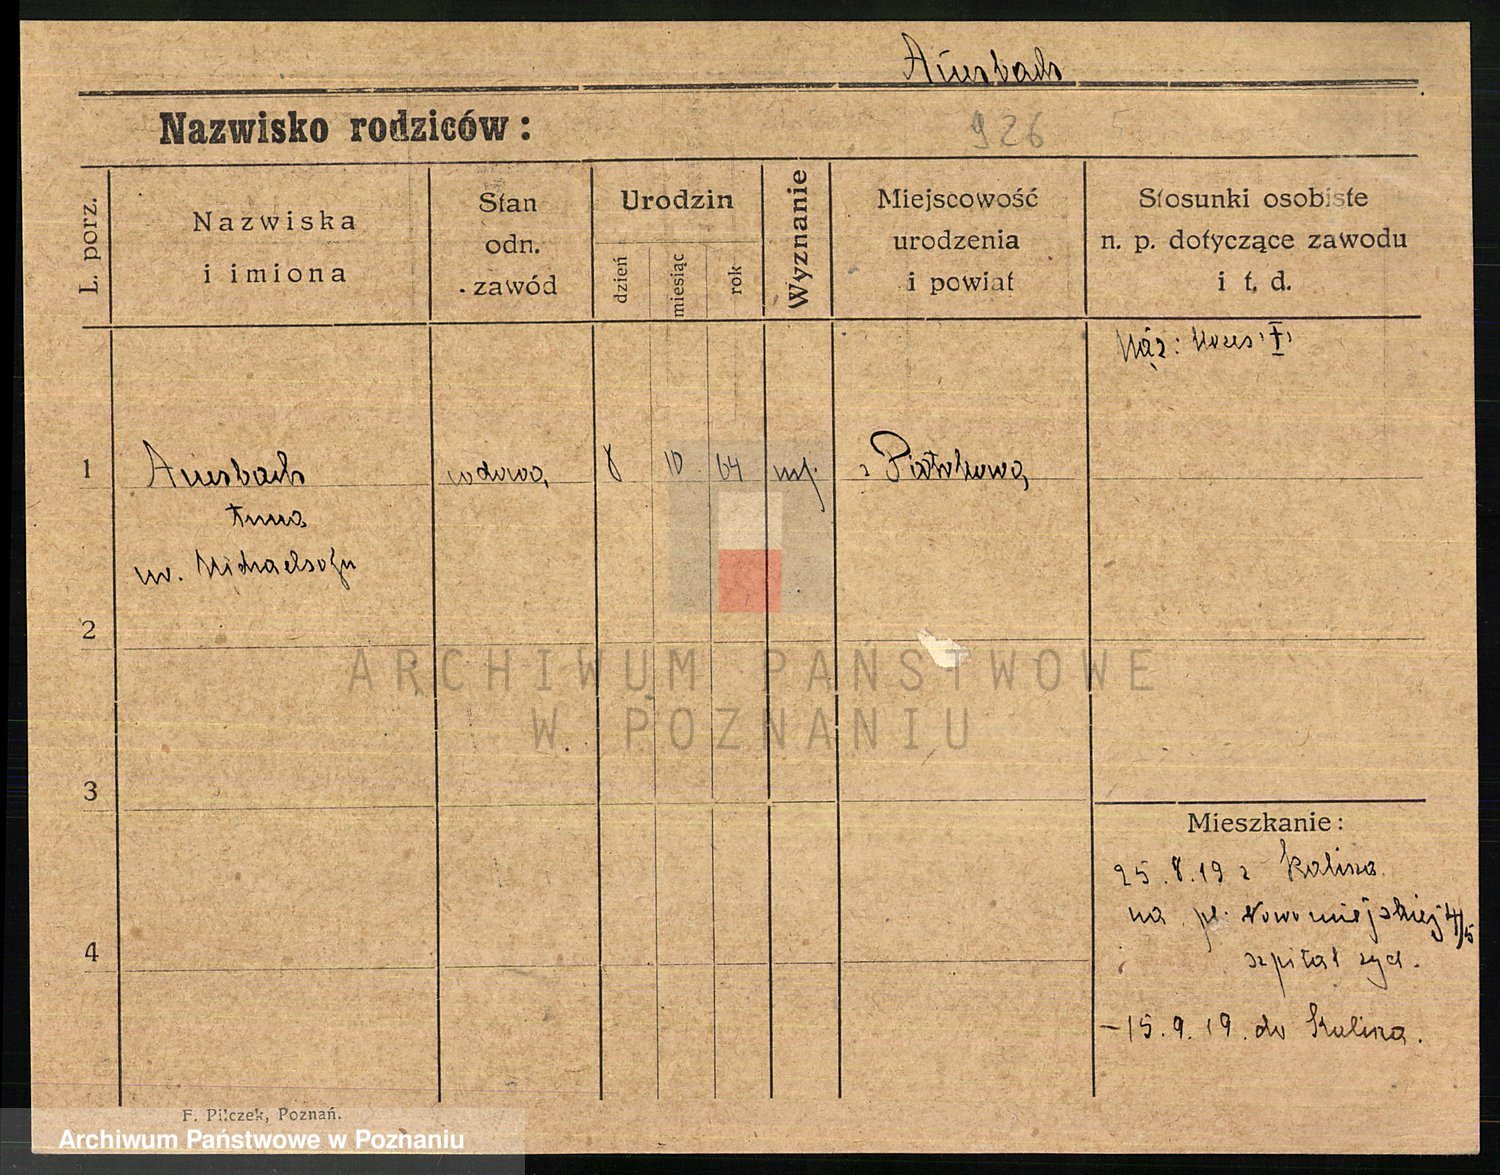 Auerbach
Nazwisko rodziców:
926
L. porz.
Nazwiska
i imiona
Stan
odn.
zawód
Urodzin
dzień
miesiąc
rok
Wyznanie
Miejscowość
urodzenia
i powiat
Stosunki osobiste
n. p. dotyczące zawodu
i t. d.
Mąż:
1
Auerbach
wdowa
8
10
64
z Piotrkowa
Anna
ur. Michaelsohn
2
ARCHIWUM PAŃSTWOWE
W POZNANIU
3
Mieszkanie:
25.8.19 z Kalisza
na pl. Nowomiejskiej 4/5
4
szpital żyd.
-15.9.19. do Kalisza.
F. Pilczek, Poznań.
Archiwum Państwowe w Poznaniu